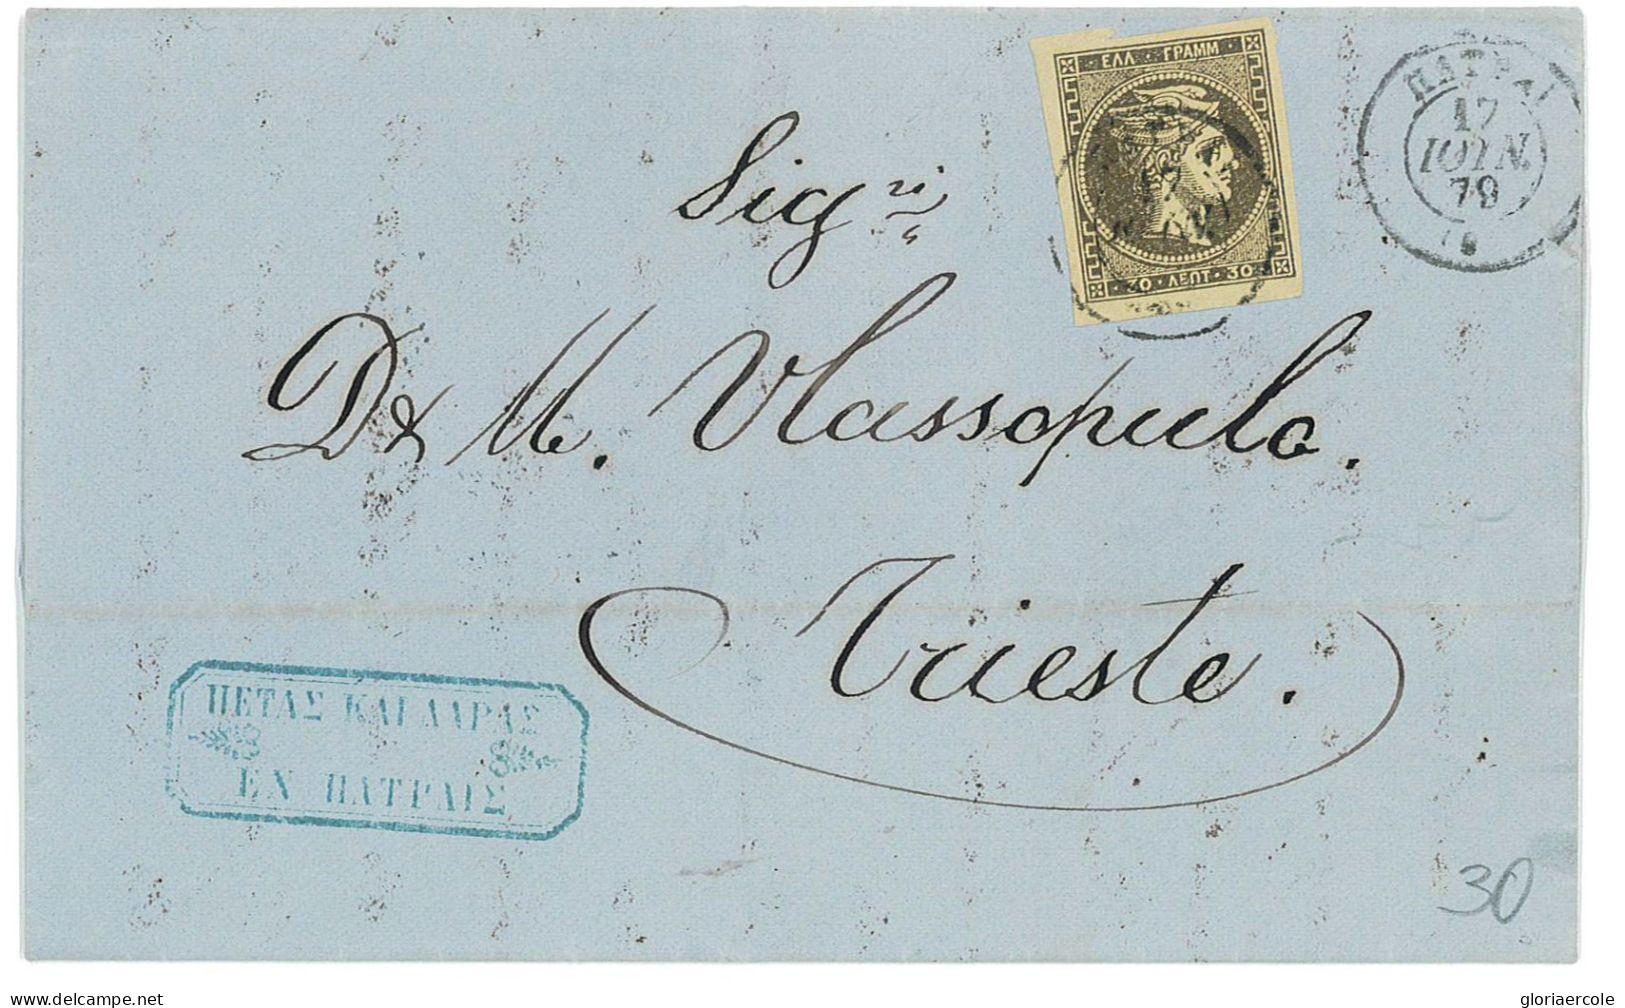 ΕΛΛ · ΓΡΑΜΜ
30 · ΛΕΠΤ · 30
17
ΠΑΤΡΑΙ
17
ΙΟΥΝ.
79
Sigri
D & M. Vlassopulo.
Trieste.
ΠΕΤΑΣ ΚΑΙ ΛΑΡΑΣ
ΕΝ ΠΑΤΡΑΙΣ
30
www.delcampe.net
gloriaercole